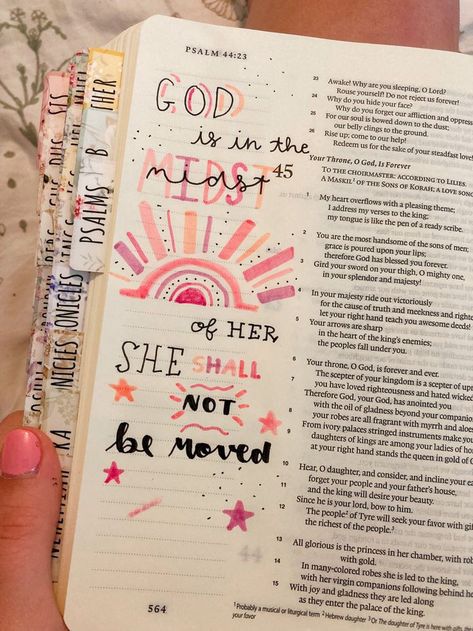 PSALM 44:23
GOD
is in the
MIDST
midst
of HER
SHE SHALL
NOT
be moved
564
PSALMS
23 Awake! Why are you sleeping, O Lord?
Rouse yourself! Do not reject us forever!
24 Why do you hide your face?
Why do you forget our affliction and oppress
25 For our soul is bowed down to the dust;
our belly clings to the ground.
26 Rise up; come to our help!
Redeem us for the sake of your steadfast love
Your Throne, O God, Is Forever
45 TO THE CHOIRMASTER: ACCORDING TO LILIES.
A MASKIL OF THE SONS OF KORAH; A LOVE SONG
1 My heart overflows with a pleasing theme;
I address my verses to the king;
my tongue is like the pen of a ready scribe.
2 You are the most handsome of the sons of men;
grace is poured upon your lips;
therefore God has blessed you forever.
3 Gird your sword on your thigh, O mighty one,
in your splendor and majesty!
4 In your majesty ride out victoriously
for the cause of truth and meekness and right
let your right hand teach you awesome deeds
5 Your arrows are sharp
in the heart of the king's enemies;
the peoples fall under you.
6 Your throne, O God, is forever and ever.
The scepter of your kingdom is a scepter of up
7 you have loved righteousness and hated wicked
Therefore God, your God, has anointed you
with the oil of gladness beyond your companion
8 your robes are all fragrant with myrrh and aloe
From ivory palaces stringed instruments make you
9 daughters of kings are among your ladies of ho
at your right hand stands the queen in gold of
10 Hear, O daughter, and consider, and incline your ea
forget your people and your father's house,
11 and the king will desire your beauty.
Since he is your lord, bow to him.
12 The people of Tyre will seek your favor with gif
the richest of the people.
13 All glorious is the princess in her chamber, with rob
with gold.
14 In many-colored robes she is led to the king,
with her virgin companions following behind he
15 With joy and gladness they are led along
as they enter the palace of the king.
1 Probably a musical or liturgical term 2 Hebrew daughter 3 Or The daughter of Tyre is here with gifts
your favor